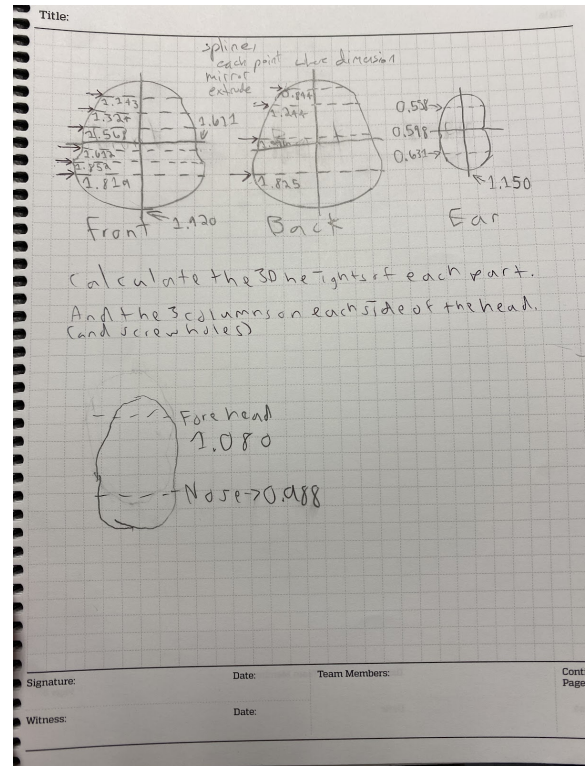 Title:
spline,
each point where dimension
mirror
extrude
1.143
1.324
1.568
1.671
1.692
1.852
1.819
1.920
Front
0.844
1.244
1.825
Back
0.538
0.598
0.631
1.150
Ear
Calculate the 3D heights of each part.
And the 3 columns on each side of the head.
(and screw holes)
Forehead
1.080
Nose->0.988
Signature:
Date:
Team Members:
Cont
Page
Witness:
Date: